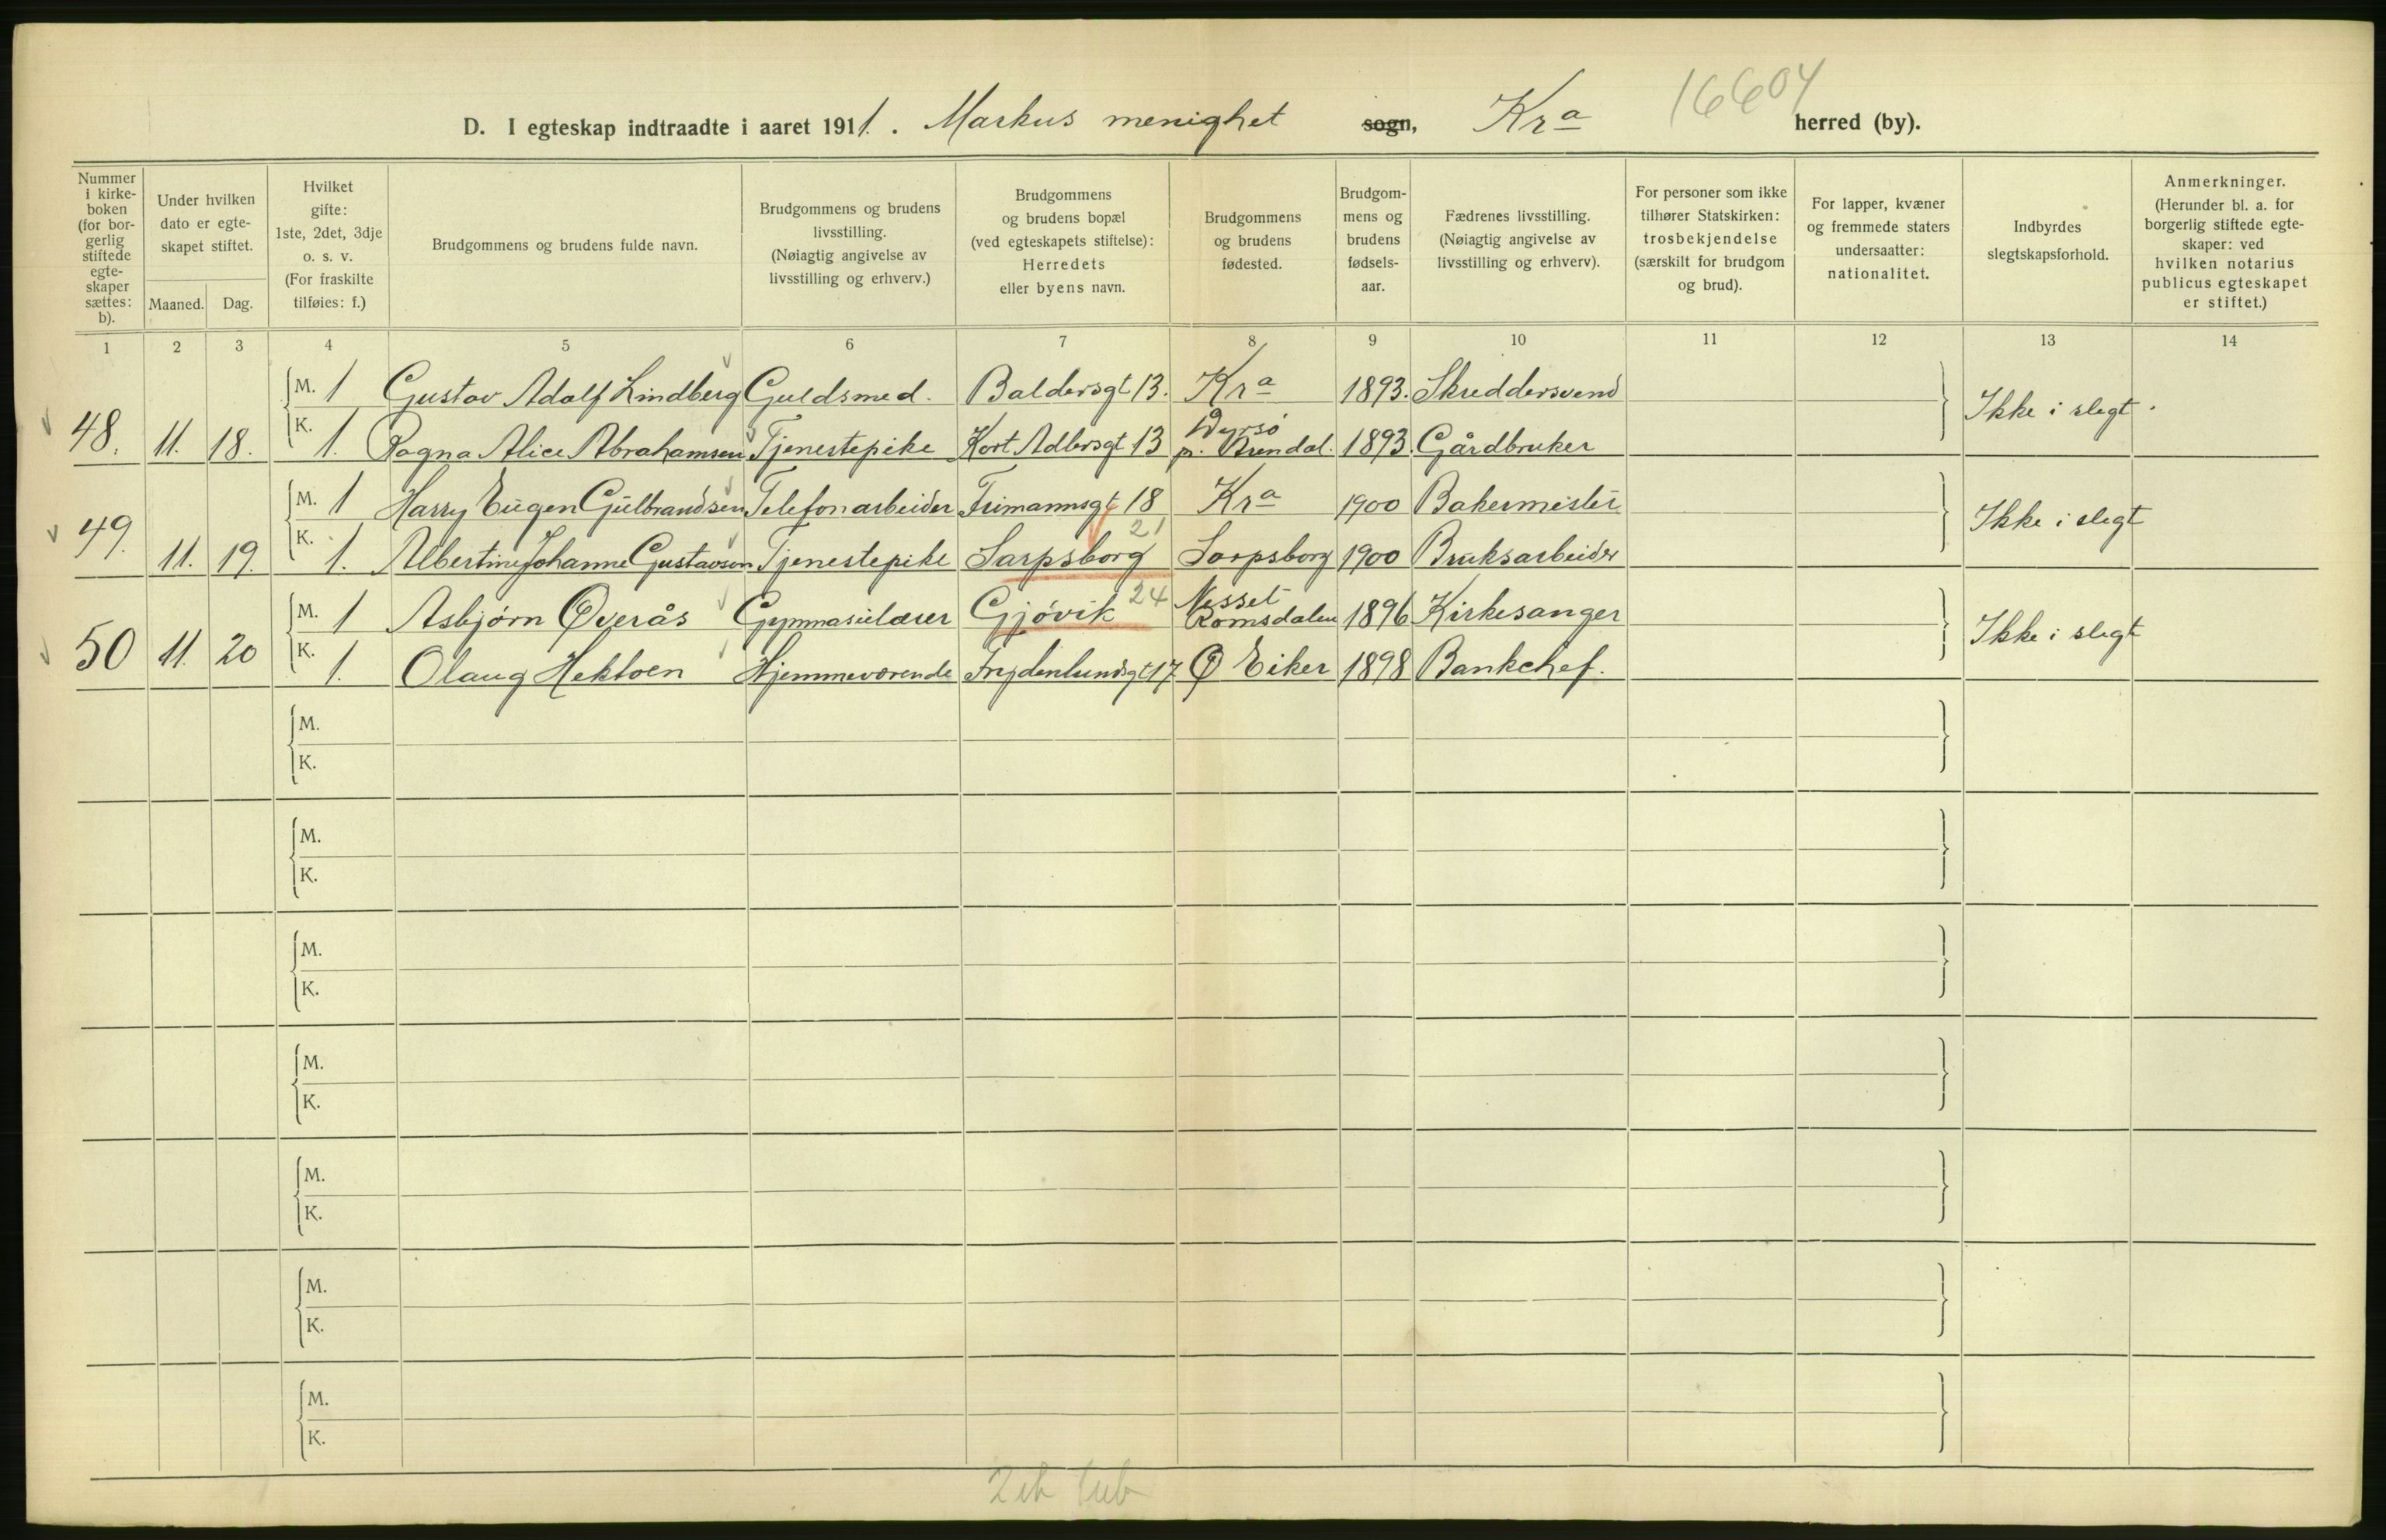 16604
D. I egteskap indtraadte i aaret 1911. Markus menighet sogn, Kra herred (by).
Nummer i kirke-boken (for bor-gerlig stiftede egte-skaper sættes: b).
Under hvilken dato er egte-skapet stiftet.
Maaned. Dag.
Hvilket gifte: 1ste, 2det, 3dje o. s. v. (For fraskilte tilføies: f.)
Brudgommens og brudens fulde navn.
Brudgommens og brudens livsstilling. (Nøiagtig angivelse av livsstilling og erhverv.)
Brudgommens og brudens bopæl (ved egteskapets stiftelse): Herredets eller byens navn.
Brudgommens og brudens fødested.
Brudgom-mens og brudens fødsels-aar.
Fædrenes livsstilling. (Nøiagtig angivelse av livsstilling og erhverv).
For personer som ikke tilhører Statskirken: trosbekjendelse (særskilt for brudgom og brud).
For lapper, kvæner og fremmede staters undersaatter: nationalitet.
Indbyrdes slegtskapsforhold.
Anmerkninger. (Herunder bl. a. for borgerlig stiftede egte-skaper: ved hvilken notarius publicus egteskapet er stiftet.)
1 2 3 4 5 6 7 8 9 10 11 12 13 14
M. 1 Gustav Adolf Lindberg Guldsmed. Baldersgt 13. Kra 1893. Skreddersvend Ikke i slegt.
48. 11. 18. K. 1. Ragna Alice Abrahamsen Tjenestepike Kort Adlersgt 13 p. Arendal. 1893. Gårdbruker
M. 1 Harry Eugen Gulbrandsen Telefonarbeider Frimannsgt 18 Kra 1900 Bakermester Ikke i slegt
21
49. 11. 19. K. 1. Albertine Johanne Gustavson Tjenestepike Sarpsborg Sarpsborg 1900 Bruksarbeider
24 Nesset
M. 1 Asbjørn Øverås Gymnasielærer Gjøvik Romsdalen 1896 Kirkesanger Ikke i slegt
50 11. 20 K. 1. Olaug Hektoen Hjemmeværende Frydenlundsgt 17 Ø Eiker 1898 Bankchef.
M.
K.
M.
K.
M.
K.
M.
K.
M.
K.
M.
K.
M.
K.